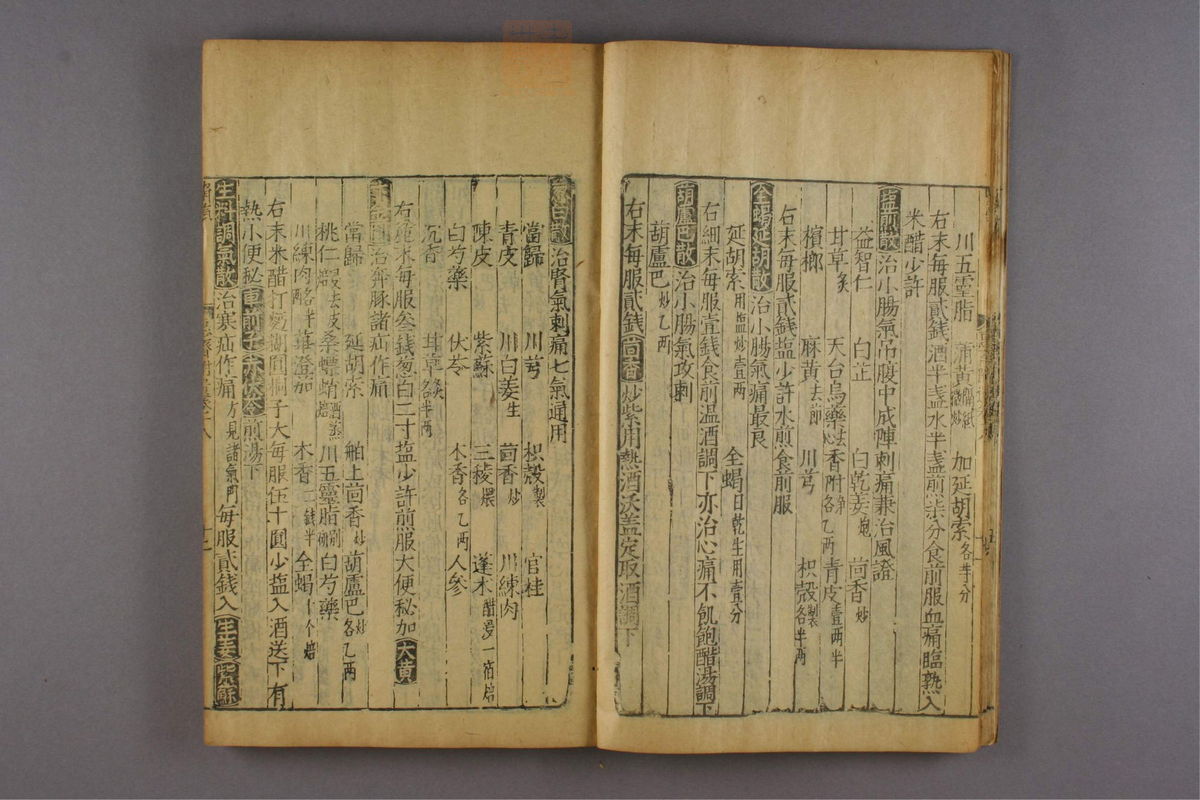 川五靈脂 蒲黃 加延胡索各等分
右末每服貳錢酒半盞水半盞煎柒分食前服血痛臨熟入
米醋少許
塩煎散治小腸氣吊腹中成陣刺痛兼治風證
益智仁 白芷 白乾姜炮 茴香炒
甘草炙 天台烏藥去心 香附各乙兩 青皮壹兩半
檳榔 麻黃去節 川芎 枳殼製各半兩
右末每服貳錢塩少許水煎食前服
全蝎延胡散治小腸氣痛最良
延胡索用塩炒壹兩 全蝎日乾生用壹分
右細末每服壹錢食前温酒調下亦治心痛不飢飽醋湯調下
胡蘆巴散治小腸氣攻刺
葫蘆巴炒乙兩
右末每服貳錢茴香炒紫用熱酒沃盖定取酒調下
葱白散治腎氣刺痛七氣通用
當歸 川芎 枳殼製 官桂
青皮 川白姜生 茴香炒 川練肉
陳皮 紫蘇 三稜煨 蓬术醋浸一宿焙
白芍藥 伏苓 木香各乙兩 人參
沉香 甘草炙各半兩
右末每服叁錢葱白二寸塩少許煎服大便秘加大黃
治奔豚諸疝作痛
當歸 延胡索 舶上茴香炒 葫蘆巴炒各乙兩
桃仁 桑螵蛸 川五靈脂 白芍藥
川練肉 蓽澄加 木香一錢半 全蝎十个焙
右末米醋打麪湖圓桐子大每服伍十圓少塩入酒送下有
熱小便秘車前子赤伏令煎湯下
生料調氣散治寒疝作痛方見諸氣門每服貳錢入生姜紫蘇